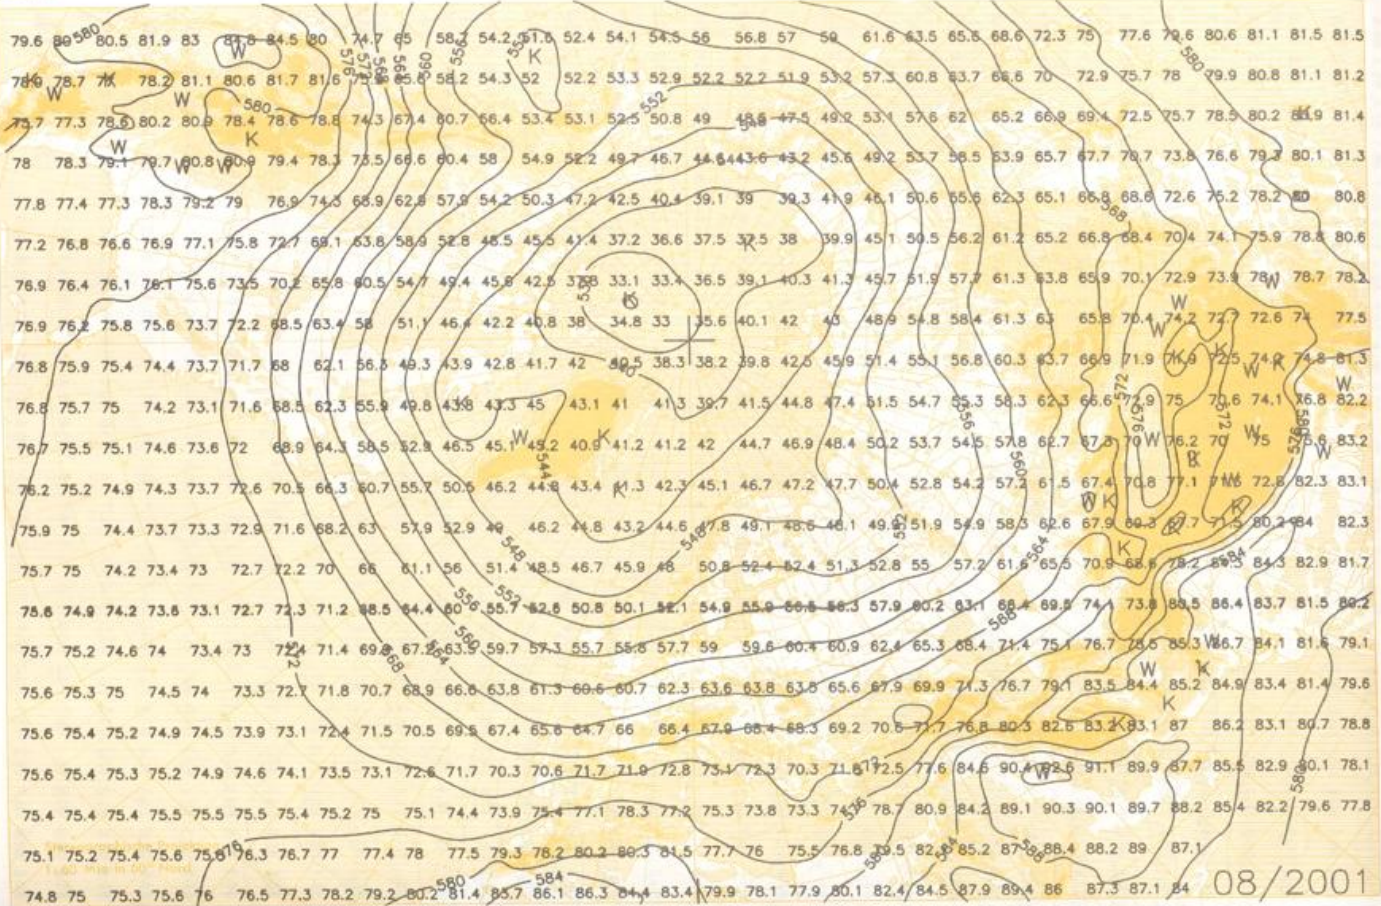 580
79.6 80.5 81.9 83 84.5 80 74.7 65 54.2 51.6 52.4 54.1 54.5 56 56.8 57 59 61.6 63.5 65.6 68.6 72.3 75 77.6 79.6 80.6 81.1 81.5 81.5
W K
576 560 580
78.7 78.2 81.1 80.6 81.7 81.6 58.2 54.3 52 52.2 53.3 52.9 52.2 52.2 51.9 53.2 57.3 60.8 63.7 68.6 70 72.9 75.7 78 79.9 80.8 81.1 81.2
W W 580 552
77.3 78.6 80.2 80.9 78.4 78.6 78.8 74.3 67.4 60.7 56.4 53.4 53.1 52.5 50.8 49 47.5 49.2 53.1 57.6 62 65.2 66.9 69.4 72.5 75.7 78.5 80.2 81.4
W K 548
78 78.3 79.1 79.7 80.8 80.9 79.4 78.3 73.5 66.6 60.4 58 54.9 52.2 49.7 46.7 43.2 45.6 49.2 53.7 58.5 63.9 65.7 67.7 70.7 73.8 76.6 79.3 80.1 81.3
W W
77.8 77.4 77.3 78.3 79.2 79 76.9 74.3 68.9 62.9 57.9 54.2 50.3 47.2 42.5 40.4 39.1 39 39.3 41.9 46.1 50.6 55.6 62.3 65.1 66.8 68.6 72.6 75.2 78.2 80 80.8
568
77.2 76.8 76.6 76.9 77.1 75.8 72.7 69.1 63.8 58.9 52.8 48.5 45.5 41.4 37.2 36.6 37.5 37.5 38 39.9 45.1 50.5 56.2 61.2 65.2 66.8 68.4 70.4 74.1 75.9 78.8 80.6
K
76.9 76.4 76.1 76.1 75.6 73.5 70.2 65.8 60.5 54.7 49.4 45.6 42.5 37.8 33.1 33.4 36.5 39.1 40.3 41.3 45.7 51.9 57.7 61.3 63.8 65.9 70.1 72.9 73.9 78.1 78.7 78.2
K W W
76.9 76.2 75.8 75.6 73.7 72.2 68.5 63.4 58 51.1 46.4 42.2 40.8 38 34.8 33 35.6 40.1 42 43 48.9 54.8 58.4 61.3 63 65.8 70.4 74.2 72.7 72.6 74 77.5
W
76.8 75.9 75.4 74.4 73.7 71.7 68 62.1 56.3 49.3 43.9 42.8 41.7 42 40.5 38.3 38.2 39.8 42.5 45.9 51.4 55.1 56.8 60.3 63.7 66.9 71.9 72.5 74.2 74.8 81.3
K K W K W
572
76.8 75.7 75 74.2 73.1 71.6 68.5 62.3 55.9 49.8 43.8 43.3 45 43.1 41 41.3 39.7 41.5 44.8 47.4 51.5 54.7 55.3 58.3 62.3 66.6 72.9 75 70.6 74.1 76.8 82.2
556 576 572 580
76.7 75.5 75.1 74.6 73.6 72 68.9 64.3 58.5 52.9 46.5 45.1 45.2 40.9 41.2 41.2 42 44.7 46.9 48.4 50.2 53.7 54.5 57.8 62.7 67.3 70 76.2 70 75 75.6 83.2
W K W W W
544 560 K
76.2 75.2 74.9 74.3 73.7 72.6 70.5 66.3 60.7 55.7 50.5 46.2 44.8 43.4 41.3 42.3 45.1 46.7 47.2 47.7 50.4 52.8 54.2 57.2 61.5 67.4 70.8 77.1 72.8 82.3 83.1
K W K W K
75.9 75 74.4 73.7 73.3 72.9 71.6 68.2 63 57.9 52.9 49 46.2 44.8 43.2 44.6 47.8 49.1 48.6 48.1 49.9 51.9 54.9 58.3 62.6 67.9 69.3 67.7 71.5 80.2 84 82.3
548 548 552 564 K 584
75.7 75 74.2 73.4 73 72.7 72.2 70 66 61.1 56 51.4 48.5 46.7 45.9 48 50.8 52.4 52.4 51.3 52.8 55 57.2 61.6 65.5 70.9 68.6 78.2 84.3 82.9 81.7
556 552
75.6 74.9 74.2 73.6 73.1 72.7 72.3 71.2 68.5 64.4 60 55.7 52.6 50.8 50.1 52.1 54.9 55.9 56.6 56.3 57.9 60.2 63.1 66.4 69.5 74.1 73.8 80.5 86.4 83.7 81.5 80.2
560 588
75.7 75.2 74.6 74 73.4 73 72.4 71.4 69.8 67.2 63.9 59.7 57.3 55.7 55.8 57.7 59 59.6 60.4 60.9 62.4 65.3 68.4 71.4 75.1 76.7 78.5 85.3 86.7 84.1 81.6 79.1
572 568 564 W
W K
75.6 75.3 75 74.5 74 73.3 72.7 71.8 70.7 68.9 66.6 63.8 61.3 60.6 60.7 62.3 63.6 63.8 63.5 65.6 67.9 69.9 71.3 76.7 79.1 83.5 84.4 85.2 84.9 83.4 81.4 79.6
K
75.6 75.4 75.2 74.9 74.5 73.9 73.1 72.4 71.5 70.5 69.5 67.4 65.6 64.7 66 66.4 67.9 68.4 68.3 69.2 70.6 71.7 76.8 80.3 82.6 83.2 83.1 87 86.2 83.1 80.7 78.8
K
572
75.6 75.4 75.3 75.2 74.9 74.6 74.1 73.5 73.1 72.6 71.7 70.3 70.6 71.7 71.9 72.8 73.1 72.3 70.3 71.6 72.5 77.6 84.6 90.4 92.6 91.1 89.9 87.7 85.5 82.9 80.1 78.1
W 580
576
75.4 75.4 75.4 75.5 75.5 75.5 75.4 75.2 75 75.1 74.4 73.9 75.4 77.1 78.3 77.2 75.3 73.8 73.3 78.7 80.9 84.2 89.1 90.3 90.1 89.7 88.2 85.4 82.2 79.6 77.8
576 580 584 588
75.1 75.2 75.4 75.6 75.8 76.3 76.7 77 77.4 78 77.5 79.3 78.2 80.2 80.3 81.5 77.7 76 75.5 76.8 79.5 85.2 88.4 88.2 89 87.1
580 584
74.8 75 75.3 75.6 76 76.5 77.3 78.2 79.2 80.2 81.4 83.7 86.1 86.3 84.4 83.4 79.9 78.1 77.9 80.1 82.4 84.5 87.9 89.4 86 87.3 87.1 84
08/2001